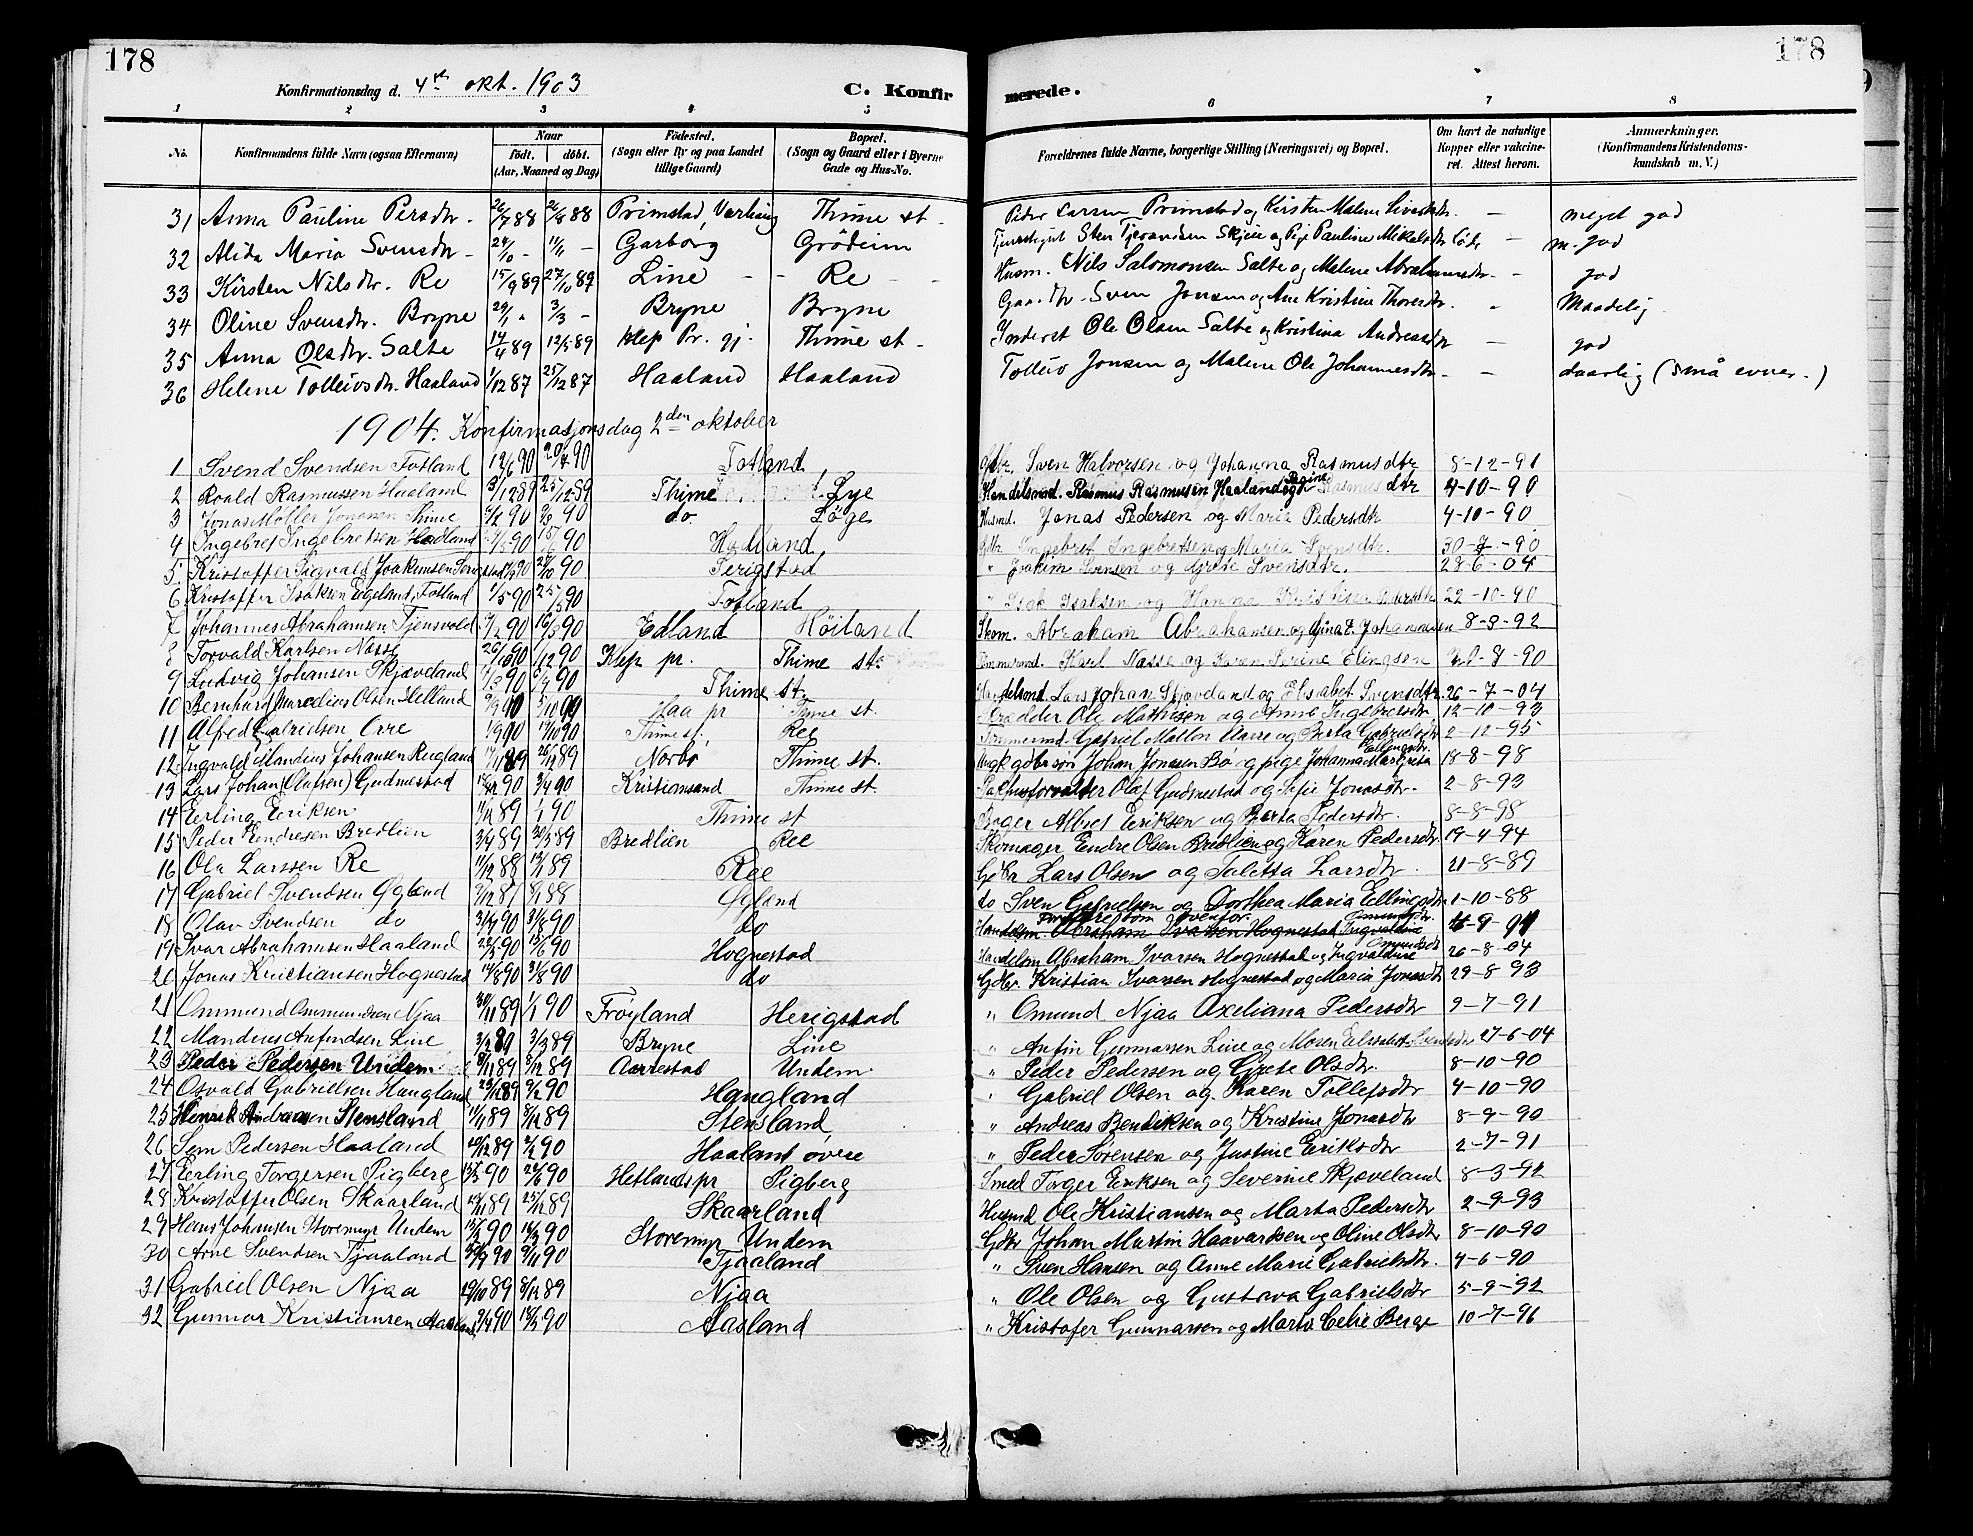 178 178
Konfirmationsdag d. 4de okt. 1903 C. Konfirmerede.
1 2 3 4 5 6 7 8
No. Konfirmandens fulde Navn (ogsaa Efternavn) Naar født. døbt. (Aar, Maaned og Dag) Fødested. (Sogn eller By og paa Landet tillige Gaard) Bopæl. (Sogn og Gaard eller i Byerne Gade og Hus-No. Forældrenes fulde Navne, borgerlige Stilling (Næringsvei) og Bopæl. Om havt de naturlige Kopper eller vakcineret. Attest herom. Anmærkninger. (Konfirmandens Kristendomskundskab m. V.)
31 Anna Pauline Persdtr. 26/7 88 26/8 88 Primstad, Varhaug Thime st. Peder Larsen Primstad og Kirsten Malene - meget god
32 Alida Maria Svensdtr - Garborg Grødeim Sten Tjerandsen Skjeie og Pige Pauline Mikalsdtr - m. god
33 Kirsten Nilsdtr. Re 15/9 89 27/10 89 Line - - Re - Husm. Nils Salomonsen Salte og Malene Abrahamsdtr. - god
34 Oline Svensdtr. Bryne 29/1 - 3/3 - Bryne Bryne Gaardbr. Sven Jonsen og Ane Kristine Thoresdtr - Maadelig
35 Anna Olsdtr. Salte 14/4 89 12/5 89 Klep Pr. gj. Thime st. Inderst Ole Olsen Salte og Kristina Andreasdtr - god
36 Helene Tolleivsdtr. Haaland 1/12 87 25/12 87 Haaland Haaland Tolleiv Jonsen og Malene Ole Johannesdtr. - daarlig (små evner.)
1904. Konfirmasjonsdag 2den oktober
1 Svend Svendsen Fotland 12/6 90 20/7 90 Fotland Gbr. Sven Halvorsen og Johanna Rasmusdtr 8-12-91
2 Roald Rasmussen Haaland 3/12 89 25/12 89 Thime Lye Handelsmd. Rasmus Rasmusen Haaland og Rasmusdtr 4-10-90
3 Jonas Møller Jonasen Thime 90 90 do. Løge Husmd. Jonas Pedersen og Maria Pedersdtr 4-10-90
4 Ingebret Ingebretsen Hadland 90 90 Hadland Gbr. Ingebret Ingebretsen og Maria Svensdtr. 30-7-90
5 Kristoffer Sigvald Joakimsen 90 90 " Joakim Svensen og Grete Svensdtr. 28-6-04
6 Kristoffer Isaksen Eigeland, Fotland 1/5 90 25/5 90 Fotland " Isak Isaksen og Hanna 22-10-90
7 Johannes Abrahamsen Tjensvold 90 16/3 90 Edland Høiland Skom. Abraham Abrahamsen og Gina E. Johannesen 8-3-92
8 Torvald Karlsen Nasse 90 90 Klep pr. Thime st. Karl Nasse og Karen Serine Elingsen 30-8-90
9 Ludvig Johansen Skjæveland 90 90 Thime st. Handelsmd. Lars Johan Skjæveland og Elisabet Svensdtr. 26-7-04
10 Bernhard Marelius Olsen Helland 90 90 Haa pr Thime st. Ole Mathisen og Anne Ingebretsdtr 12-10-93
11 Alfred Gabrielsen Orre 90 90 Thime st. Ree Tømmermd. Gabriel og Berta Gabrielsdtr 2-12-95
12 Ingvald Mandius Johansen Rugland 89 26/12 89 Norbø Thime st. Ungk. Johan Jonasen Bø og pige Johanna Margreta Ellingsdtr. 18-8-98
13 Lars Johan (Olafsen) Gudmestad 90 3/4 90 Kristiansand Thime st. Pakhusforvalter Olaf Gudmestad og Sofie Jonasdtr. 2-8-93
14 Eerling Eeriksen 89 1/1 90 Thime st Bager Albret Eeriksen og Berta Pedersdtr. 8-8-98
15 Peder Endresen Bredlien 3/4 89 30/5 89 Bredlien Ree Skomager Endre Olsen Bredlien og Karen Pedersdtr 19-4-94
16 Ola Larssen Re 11/12 88 89 Ree Gdbr Lars Olsen og Taletta Larsdtr. 21-8-89
17 Gabriel Svendsen Øgland 7/12 87 8/1 88 Øgland do Sven Gabrielsen og Dorthea Maria Ellingsdtr 1-10-88
18 Olav Svendsen do 90 90 do Forældre som ovenfor.
19 Ivar Abrahamsen Haaland 90 90 Hognestad Handelsm Abraham Ivarsen Hognestad og Ingvaldine Omundsdtr 26-8-04
20 Jonas Kristiansen Hognestad 14/8 90 31/8 90 do Gdbr. Kristian Ivarsen Hognestad og Maria Jonasdtr 29-8-93
21 Ommund Ommundsen Njaa 30/11 89 1/1 90 Frøyland Herigstad " Omund Njaa Axeliana Pedersdtr 9-7-91
22 Mandius Anfindsen Line 3/2 89 3/3 89 Bryne Line " Anfin Gunnarsen Line og Maren 27-6-04
23 Peder Pedersen Undem 89 89 Aarrestad Undem " Peder Pedersen og Grete Olsdtr. 8-10-90
24 Osvald Gabrielsen Haugland 25/12 89 9/2 90 Haugland " Gabriel Olsen og Karen Tollefsdtr 4-10-90
25 Henrik Andreasen Stensland 11/11 89 8/12 89 Stensland " Andreas Bendiksen og Kristine Jonasdtr 8-9-90
26 Sem Pedersen Haaland 20/12 89 2/2 90 Haaland øvre " Peder Sørensen og Justine Eeriksdtr 2-7-91
27 Eerling Torgersen Sigberg 13/5 90 22/6 90 Hetlands pr Sigberg Smed Torger Eeriksen og Severine Skjæveland 8-3-92
28 Kristoffer Olsen Skaarland 89 25/12 89 Skaarland Husmd Ole Kristiansen og Marta Pedersdtr 2-9-93
29 Hans Johansen Storemyr Undem 90 90 Storemyr Undem Gdbr Johan Martin Haavardsen og Oline Olsdtr 8-10-90
30 Arne Svendsen Tjaaland 90 90 Tjaaland " Sven Hansen og Anne Marie Gabrielsdtr. 4-6-90
31 Gabriel Olsen Njaa 29/10 89 8/12 89 Njaa " Ole Olsen og Gustava Gabrielsdtr 5-9-92
32 Gunnar Kristiansen Aasland 90 90 Aasland " Kristofer Gunnarsen og Marta Celie Berge 10-7-96